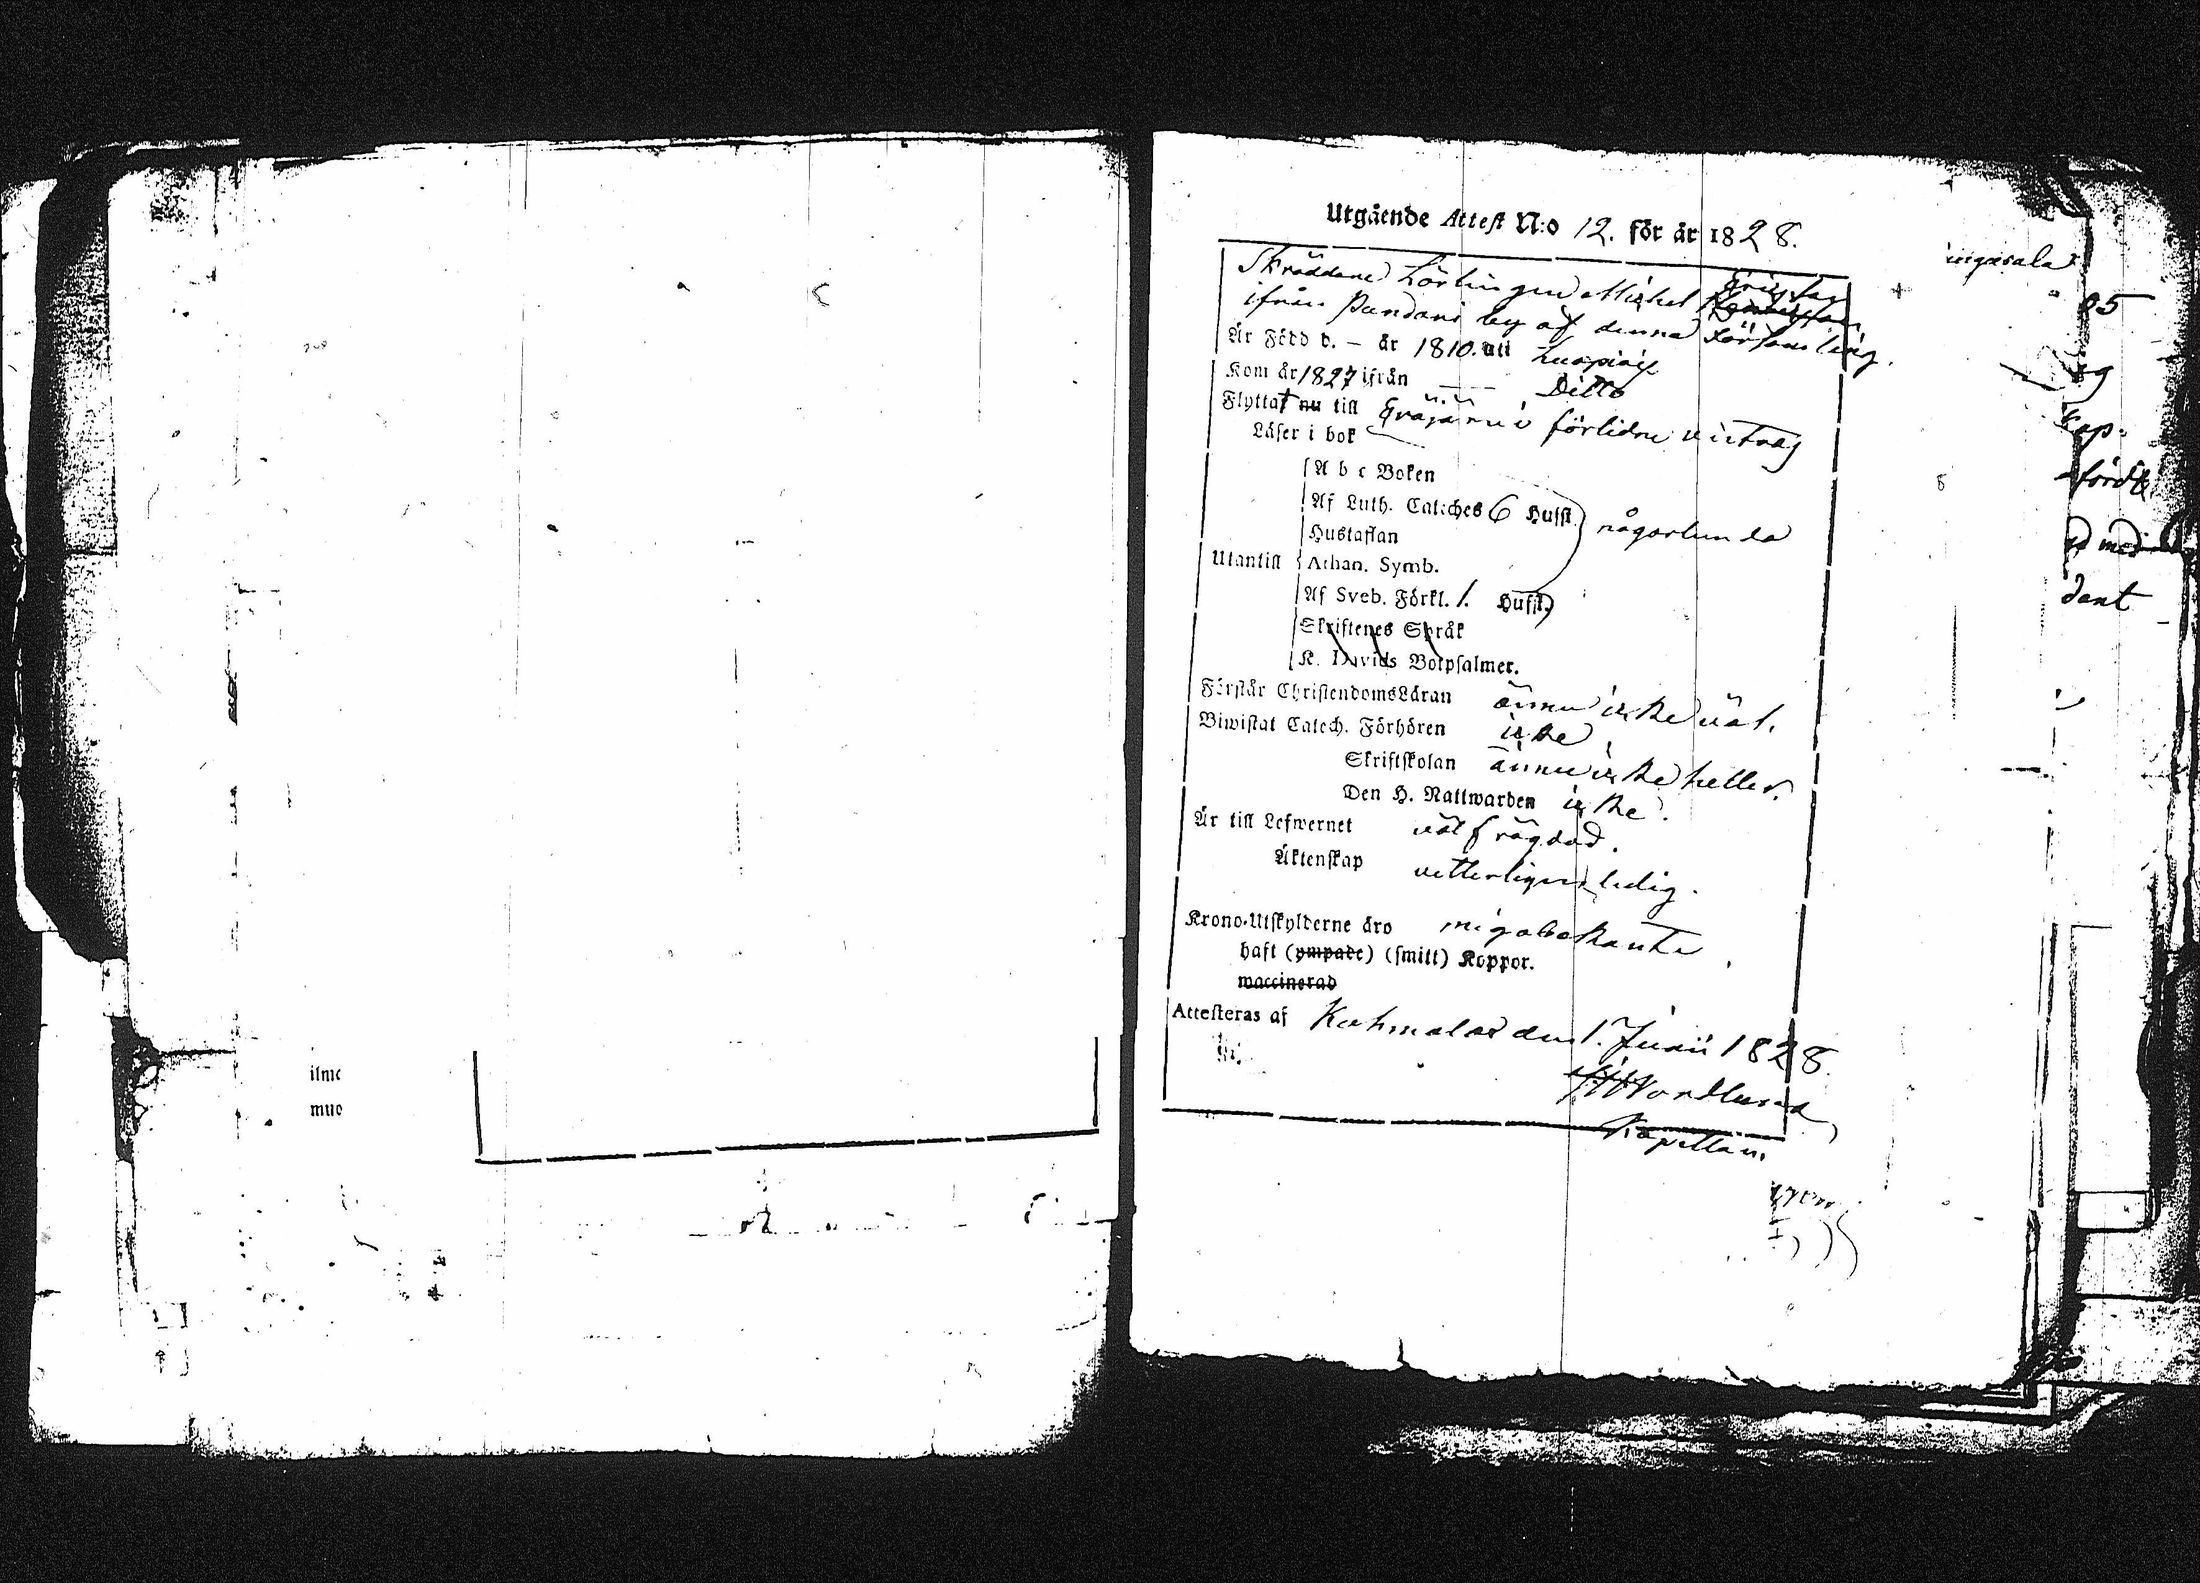 ilme
muo
Utgående Attest N:o 12. för år 1828.
Skräddare Lärlingen Michel
ifrån Pundars by af denna Församling.
Är Född d. – år 1810. uti Kuopio
Kom år 1827 ifrån Ditto
Flyttat nu till förliden
Läser i bok
A b c Boken
Af Luth. Cateches 6 Hufst. någorlunda
Hustaflan
Utantill
Athan. Symb.
Af Sveb. Förkl. 1. Hufst.
Skriftenes Språk
K. Davids Botpsalmer.
Förstår ChristendomsLäran ännu icke väl.
Biwistat Catech. Förhören icke
Skriftskolan ännu icke heller.
Den H. Nattwarden icke.
Är till Lefwernet väl frägdad.
Äktenskap vetterligen ledig.
Krono-Utskylderne äro mig obekante
haft (ympade) (smitt) Koppor.
waccinerad
Attesteras af Kuhmalax den 1. Junii 1828.
Nordlund
Kapellan.
ingasala
85
kap.
förd
med
dant